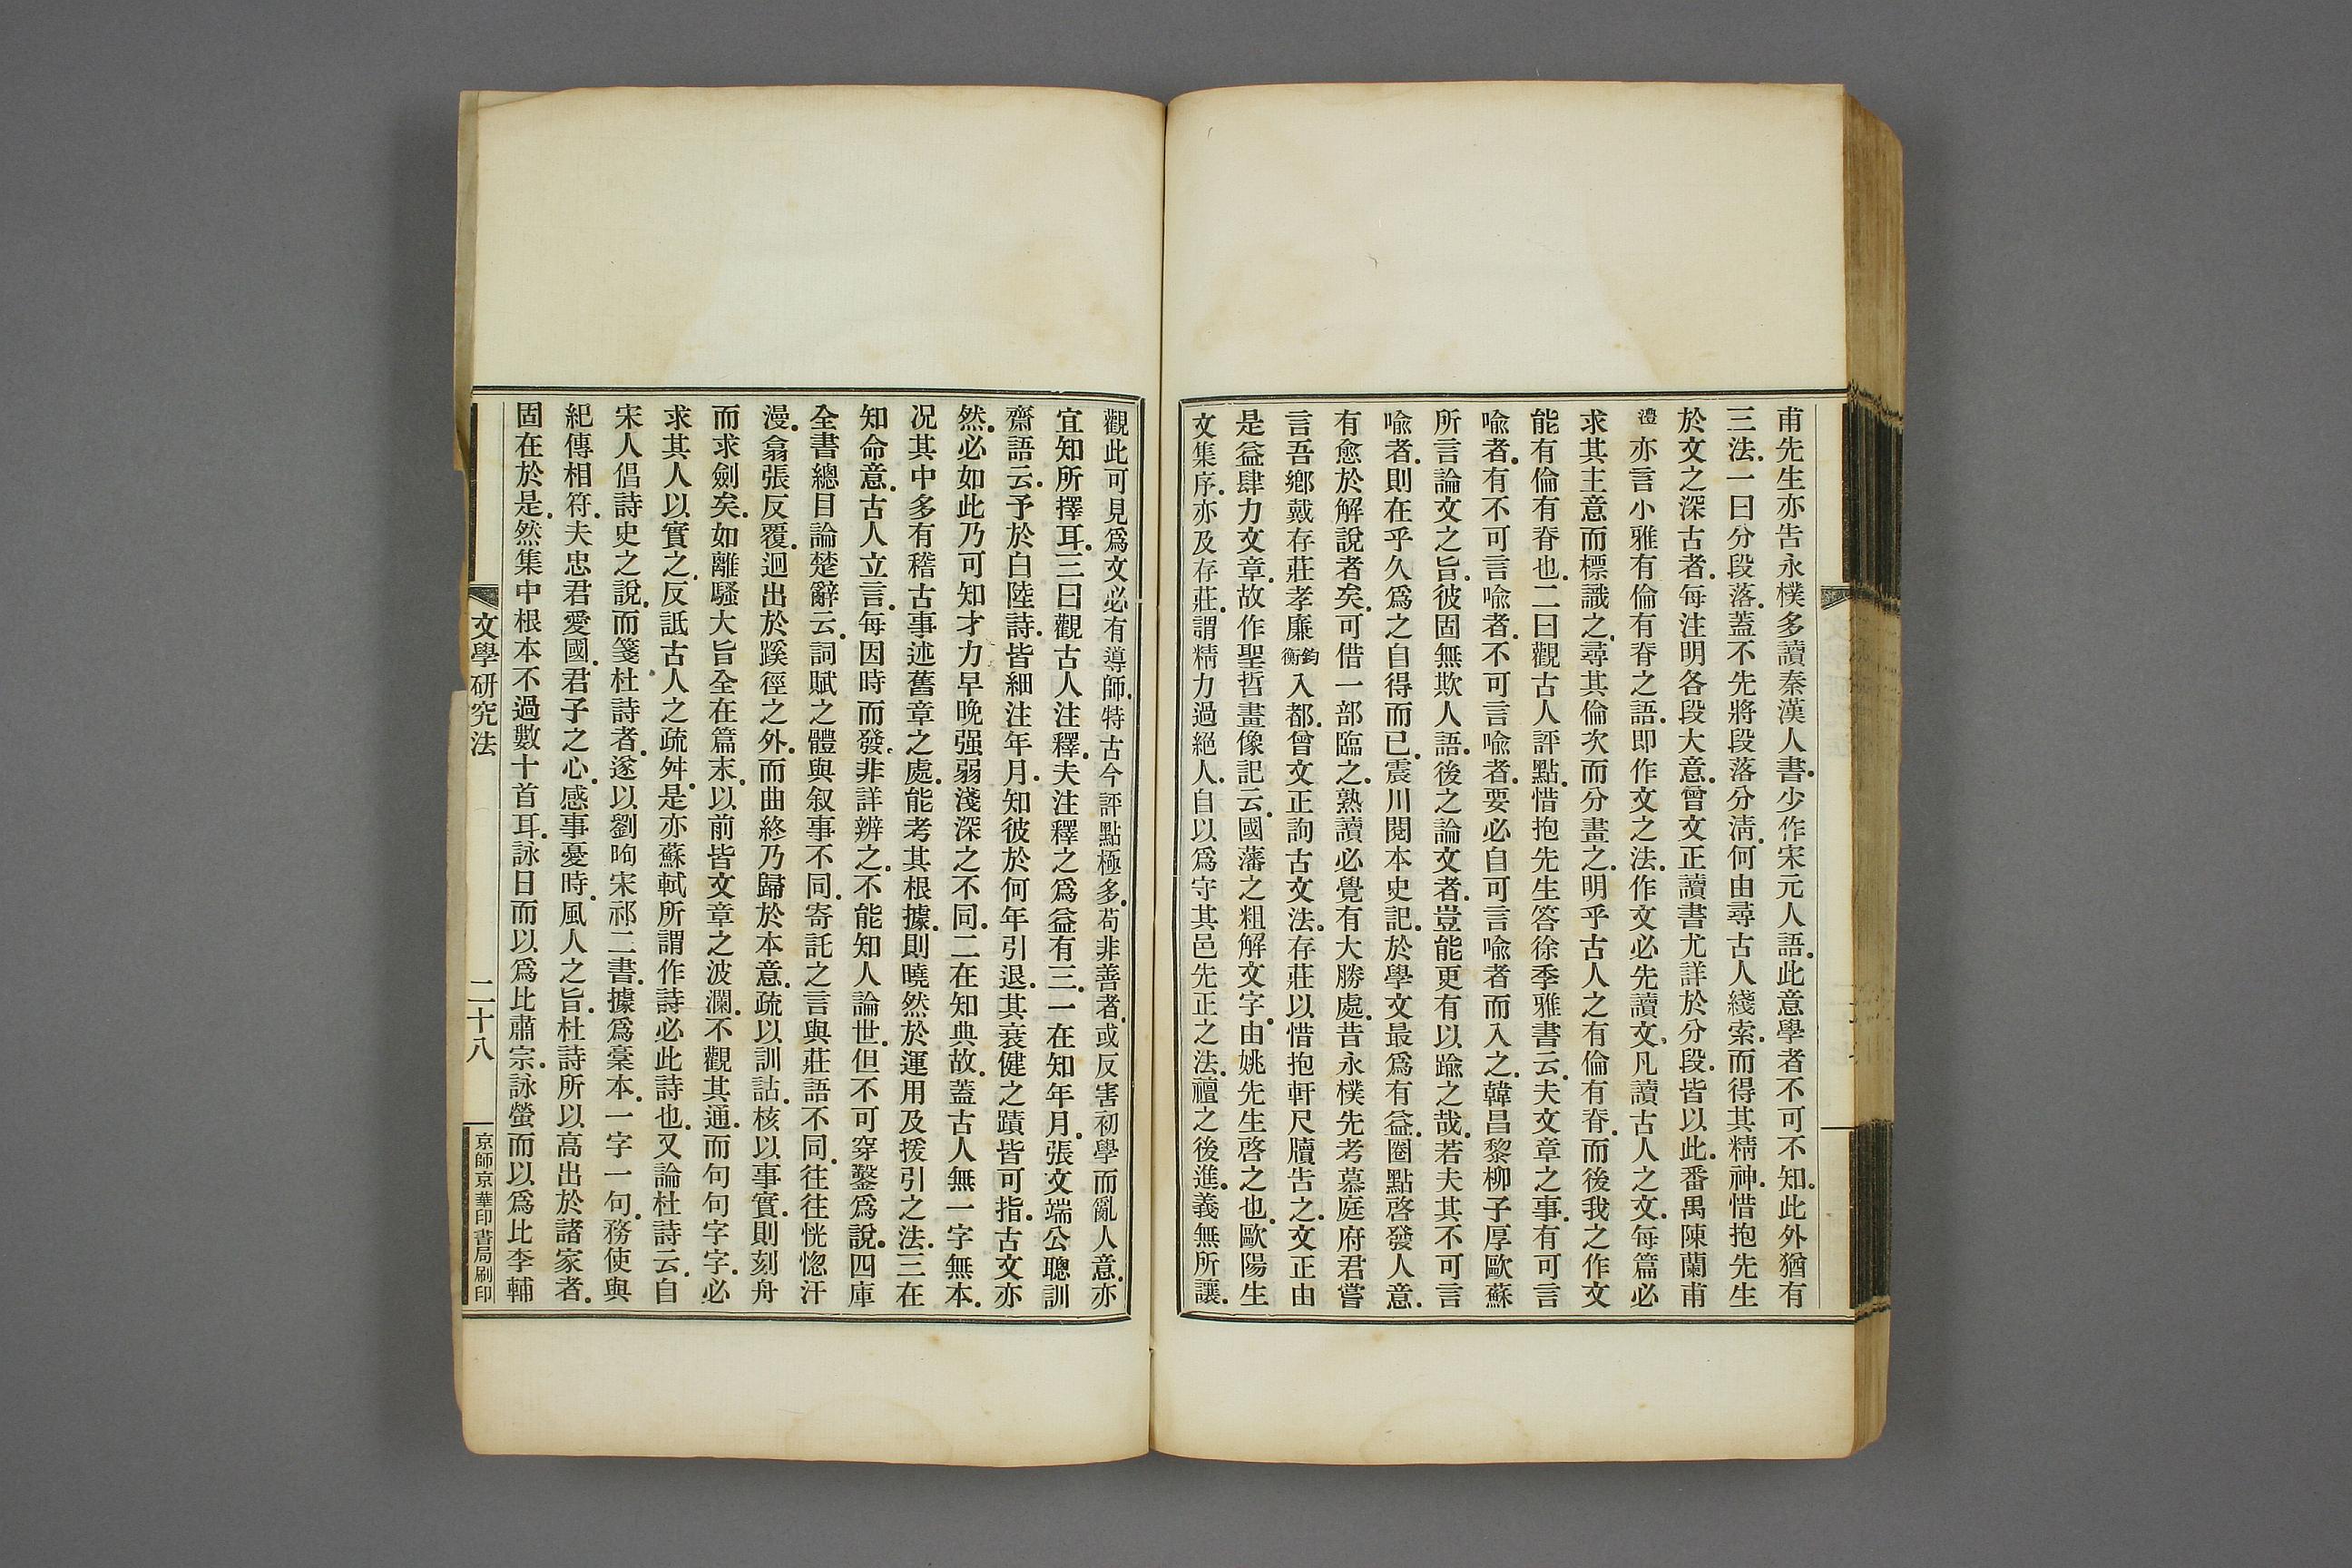 甫先生亦告永樸多讀秦漢人書.少作宋元人語.此意學者不可不知.此外猶有
三法.一曰分段落.蓋不先將段落分淸.何由尋古人綫索.而得其精神.惜抱先生
於文之深古者.每注明各段大意.曾文正讀書尤詳於分段.皆以此.番禺陳蘭甫
澧亦言小雅有倫有脊之語.即作文之法.作文必先讀文.凡讀古人之文.每篇必
求其主意而標識之.尋其倫次而分畫之.明乎古人之有倫有脊.而後我之作文
能有倫有脊也.二曰觀古人評點.惜抱先生答徐季雅書云.夫文章之事.有可言
喩者.有不可言喩者.不可言喩者.要必自可言喩者而入之.韓昌黎柳子厚歐蘇
所言論文之旨.彼固無欺人語.後之論文者.豈能更有以踰之哉.若夫其不可言
喩者.則在乎久爲之自得而已.震川閱本史記.於學文最爲有益.圈點啓發人意.
有愈於解說者矣.可借一部臨之.熟讀必覺有大勝處.昔永樸先考慕庭府君嘗
言吾鄉戴存莊孝廉鈞衡入都.曾文正詢古文法.存莊以惜抱軒尺牘告之.文正由
是益肆力文章.故作聖哲畫像記云.國藩之粗解文字.由姚先生啓之也.歐陽生
文集序.亦及存莊.謂精力過絕人.自以爲守其邑先正之法.禮之後進.義無所讓.
觀此可見爲文必有導師.特古今評點極多.苟非善者.或反害初學而亂人意.亦
宜知所擇耳.三曰觀古人注釋.夫注釋之爲益有三.一在知年月.張文端公聰訓
齋語云.予於白陸詩.皆細注年月.知彼於何年引退.其衰健之蹟皆可指.古文亦
然.必如此乃可知才力早晚强弱淺深之不同.二在知典故.蓋古人無一字無本.
况其中多有稽古事述舊章之處.能考其根據.則曉然於運用及援引之法.三在
知命意.古人立言.每因時而發.非詳辨之.不能知人論世.但不可穿鑿爲說.四庫
全書總目論楚辭云.詞賦之體與叙事不同.寄託之言與莊語不同.往往恍惚汗
漫.翕張反覆.迥出於蹊徑之外.而曲終乃歸於本意.疏以訓詁.核以事實.則刻舟
而求劍矣.如離騷大旨全在篇末.以前皆文章之波瀾.不觀其通.而句句字字.必
求其人以實之.反詆古人之疏舛.是亦蘇軾所謂作詩必此詩也.又論杜詩云.自
宋人倡詩史之說.而箋杜詩者.遂以劉昫宋祁二書.據爲藁本.一字一句.務使與
紀傳相符.夫忠君愛國.君子之心.感事憂時.風人之旨.杜詩所以高出於諸家者.
固在於是.然集中根本不過數十首耳.詠日而以爲比肅宗.詠螢而以爲比李輔
文學研究法
二十八
京師京華印書局刷印